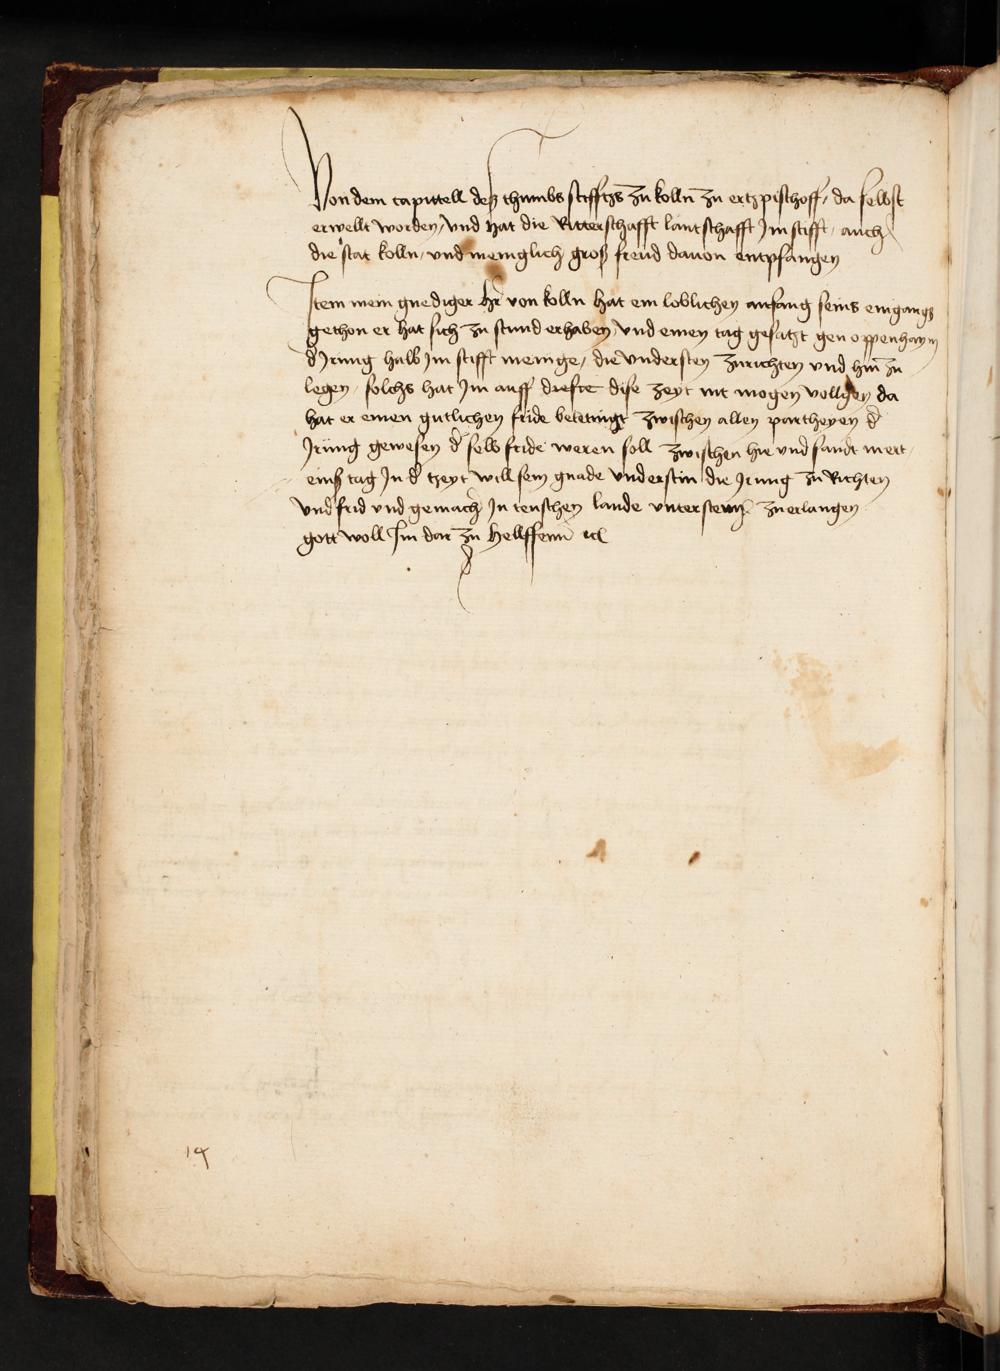 Von dem capittell deß thumbs stiffts zu kolln zu ertzpischoff, da selbst
erwellt worden, und hat die Ritterschafft lantschafft Im stifft, auch
die stat kolln, und meniglich groß freud dauon entpfangen
Item mein gnediger hr von kolln hat ein loblichen anfang seins eingangs
gethon er hat sich zu stund erhaben, und einen tag gesatzt gen oppenhaym
d Irrung halb Im stifft meintz, die understen zurichten und hin zu
legen, solchs hat Im auff dieste dise zeyt nit mogen vollgen da
hat er einen gutlichen fride beteitingt zwischen allen partheyen d
Irrung gewesen d selb fride weren soll zwischen hie und sandt mert
einß tag In d tzeyt will sein gnade understin die Irung zu Richten
und frid und gemach In teuschen lande unter zu erlangen
gott woll Im dar zu hellffenn etc
14